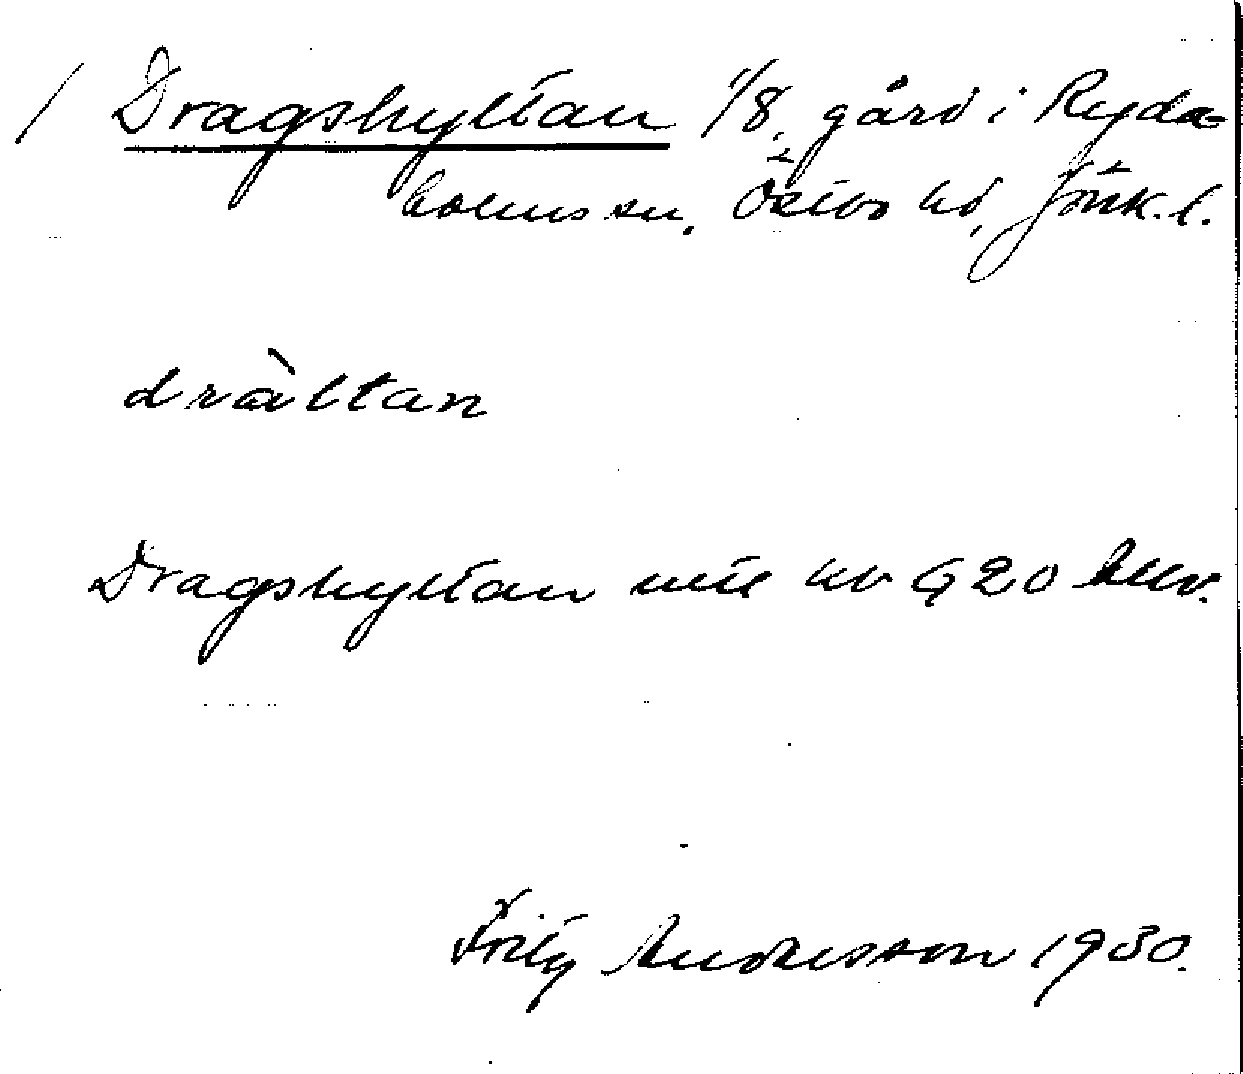 / Dragshyltan 1/8, gård i Ryda=
holms sn, Östbo hd, Jönk. l.
dràltan
Dragshyltan mtl nr 920 Allv.
Fritz Andersson 1930.